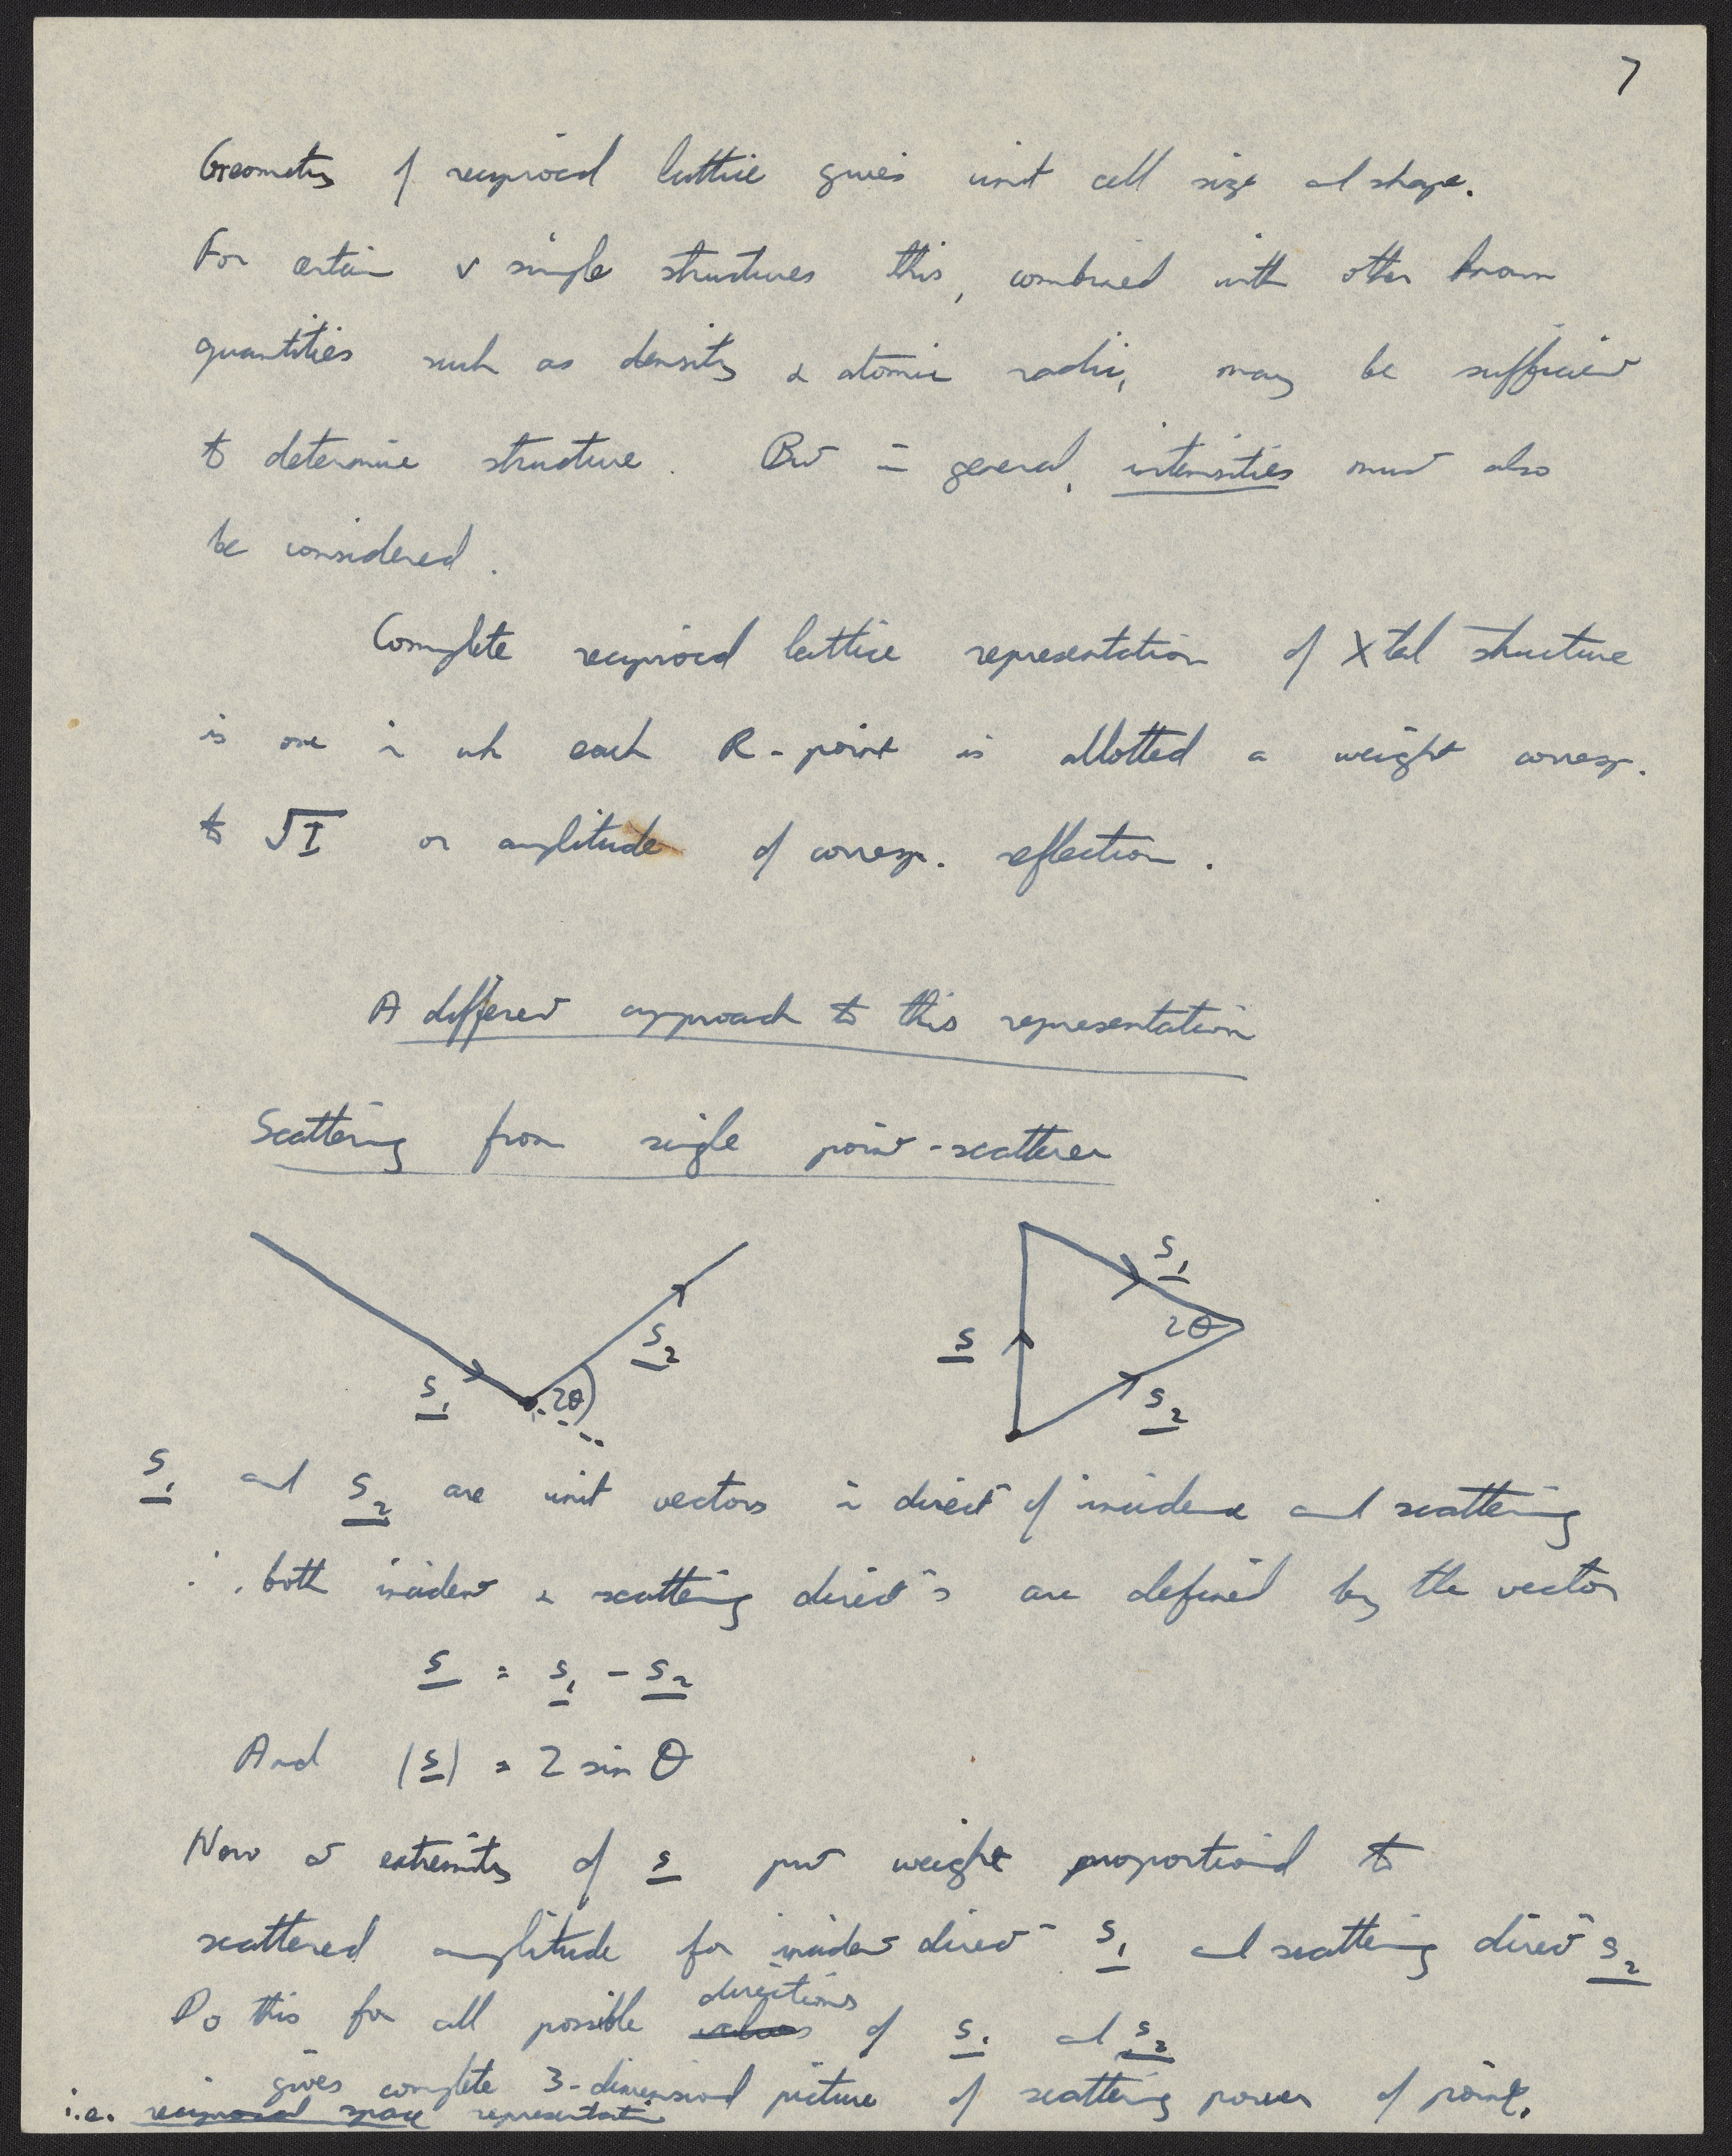 7
Geometry of reciprocal lattice gives unit cell size and shape.
For certain v simple structures this, combined with other known
quantities such as density & atomic radii, may be sufficient
to determine structure. But in general, intensities must also
be considered.
Complete reciprocal lattice representation of Xtal structure
is one in wh each R-point is allotted a weight corresp.
to √I or amplitude of corresp. reflection.
A different approach to this representation
Scattering from single point-scatterer
s₁ s₂ 2θ
s s₁ 2θ s₂
s₁ and s₂ are unit vectors in directⁿ of incidence and scattering
∴ both incident & scattering directⁿs are defined by the vector
s = s₁ - s₂
And |s| = 2 sin θ
Now at extremity of s put weight proportional to
scattered amplitude for incident directⁿ s₁ and scattering directⁿ s₂
Do this for all possible values directions of s₁ and s₂
gives complete 3-dimensional picture of scattering power of point.
i.e. reciprocal space representation